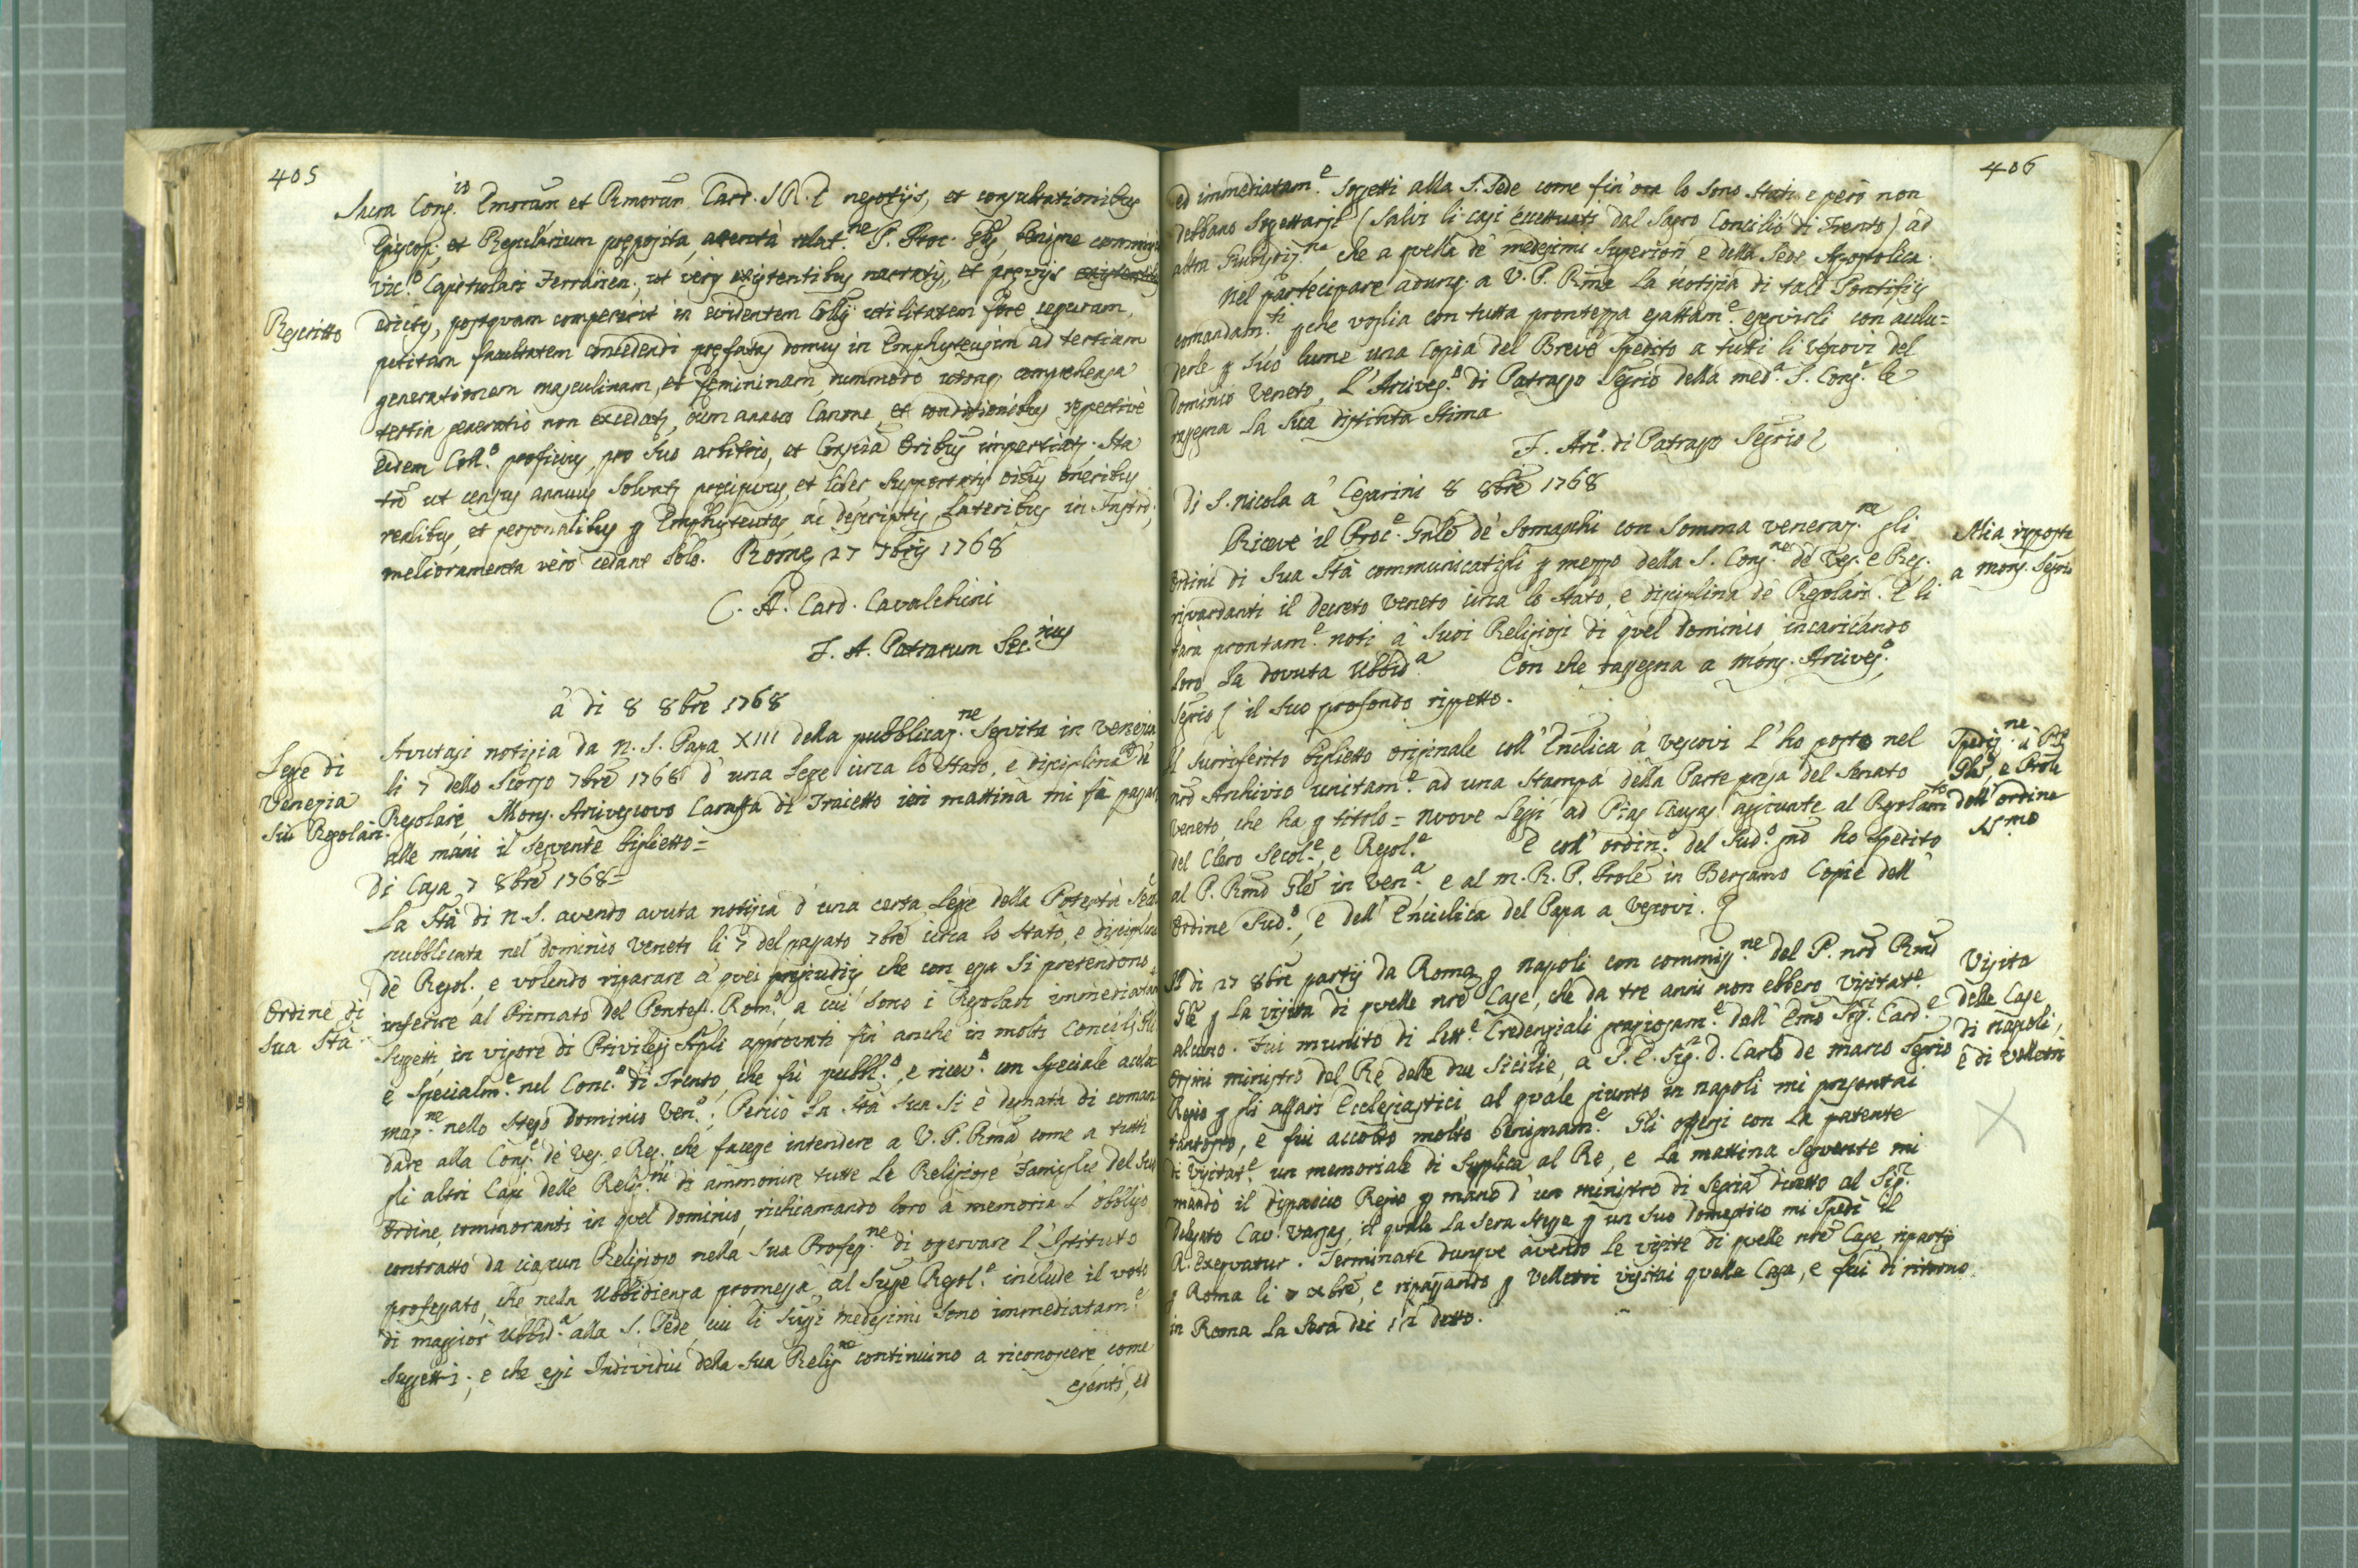 405
Sacra Cong.io Emorum et Rmorum Card. S.R.E. negotijs, et consultationibus
Episcop. et Regularium preposita, attenta relat.ne P. Proc. Glis, benigne commisit
Vic.o Capitulari Ferrarien., ut veris existentibus narratis, et previjs
Rescritto
edictis, postquam compererit in evidentem Collij utilitatem fore cessuram,
petitam facultatem concedendi prefatas domus in Emphyteusim ad tertiam
generationem masculinam, et femininam, dummodo utraq. comprehensa
tertia generatio non excedatz, cum annuo Canone, et conditionibus respective
eidem Coll.o proficuis, pro suo arbitrio, et Conscia Oribus impertiatz. Ita
tn ut census annuus solvatz precipuus, et liber supportatis oibus oneribus
realibus, et personalibus p Emphyteutas, ac descriptis lateribus in Instro,
melioramenta vero cedant solo. Rome 27 7bris 1768
C. A. Card. Cavalchini
F. A. Patracum Sec.rius
a di 8 8bre 1768
Legge di
Venezia
sui Regolari.
Avutasi notizia da N. S. Papa XIII della pubblicaz.ne seguita in Venezia
li 7 dello scorso 7bre 1768 d'una Legge circa lo Stato, e disciplina de
Regolari, Mons. Arcivescovo Caraffa di Traietto ieri mattina mi fa passar
alle mani il seguente biglietto =
Di Casa 7 8bre 1768 =
La Stà di N. S. avendo avuta notizia d'una certa Legge della Potestà Sec.
pubblicata nel dominio Veneto li 7 del passato 7bre circa lo Stato, e disciplina
de Regol., e volendo riparare a quei pregiudizj che con essa si pretendono
Ordine di
Sua Stà
inferire al Primato del Pontef. Rom.o, a cui sono i Regolari immediatam.
Suggetti, in vigore di Privilegj Apli approvati fin anche in molti Concilj Gli
e specialm.e nel Conc.o di Trento, che fù pubbl.o, e ricev.o con speciale accla
maz.ne nello stesso dominio Ven.o; Perciò la Stà sua si è degnata di coman
dare alla Cong.e de Ves. e Reg. che facesse intendere a V. P. Rma come a tutti
gli altri Capi delle Relig.ni di ammonire tutte le Religiose Famiglie del suo
Ordine, commoranti in quel dominio, richiamando loro a memoria l'obbligo
contratto da ciascun Religioso nella sua Profess.ne di osservare l'Istituto
professato, che nella Ubbidienza promessa al Supe Regol.e include il voto
di maggior Ubbid.a alla S. Sede, cui li Supi medesimi sono immediatam.e
Suggetti; e che essi Individui della sua Relig.ne continuino a riconoscere, come
esenti, ed
406
ed immediatam.e soggetti alla S. Sede come fin'ora lo sono stati e però non
debbano soggettarsi (salvi li casi eccettuati dal Sagro Concilio di Trento) ad
altra Giurisdiz.ne, che a quella de' medesimi Superiori e della Sede Apostolica.
Nel partecipare adunq. a V. P. Rma la notizia di tali Pontifizj
comandam.ti pche voglia con tutta prontezza esattam.e eseguirli con acclu=
derle p suo lume una Copia del Breve spedito a tutti li Vescovi del
Dominio Veneto, l'Arcives.o di Patrasso Segrio della med.a S. Cong.e le
rassegna la sua distinta stima
F. Arc.o di Patrasso Segrio
Di S. Nicola a' Cesarini 8 8bre 1768
Riceve il Proc.e Gnle de' Somaschi con somma veneraz.ne gli
Mia risposta
a Mons. Segrio
Ordini di Sua Stà communicatigli p mezzo della S. Cong.ne de' Ves. e Reg.
risguardanti il Decreto Veneto circa lo Stato, e disciplina de Regolari. E li
farà prontam.e noti a' suoi Religiosi di quel dominio, incaricando
loro la dovuta Ubbid.a Con che rassegna a Mons. Arcives.o
Segrio il suo profondo rispetto.
Il surriferito biglietto originale coll'Enclica a' Vescovi l'ho posto nel
Spediz.ne a P.
Gle, e Prole
dell'ordine
SS.mo
nro Archivio unitam.e ad una Stampa della Parte presa del Senato
Veneto, che ha p titolo = Nuove Leggi ad Pias Causas aggiunte al Regolam.to
del Clero Secol.e, e Regol.e E coll'ordin.o del Sud.o ho spedito
al P. Rmo Gle in Ven.a e al M. R. P. Prole in Bergamo Copie dell'
Ordine Sud.o, e dell'Enciclica del Papa a Vescovi.
A di 27 8bre partij da Roma p Napoli con commiss.ne del P. nro Rmo
Visita
delle Case
di Napoli,
e di Velletri
Gle p la visita di quelle nre Case, che da tre anni non ebbero Visitat.e
alcuno. Fui munito di Lett.e Credenziali graziosam.e dall'Emo Sig.r Card.e
Orsini ministro del Re delle due Sicilie, a S. E. Sig.r D. Carlo de Marco Segrio
Regio p gli affari Ecclesiastici, al quale giunto in Napoli mi presentai
tantosto, e fui accolto molto benignam.e Gli offersi con la patente
di Visitat.e un memoriale di supplica al Re, e la mattina seguente mi
mandò il dispaccio Regio p mano d'un ministro di Segria diretto al Sig.r
Delegato Cav. Vargas, il quale la sera stessa p un suo Domestico mi spedì il
R. Exequatur. Terminate dunque avendo le visite di quelle nre Case, ripartij
p Roma li 7 xbre, e ripassando p Velletri visitai quella Casa, e fui di ritorno
in Roma la sera dei 12 detto.